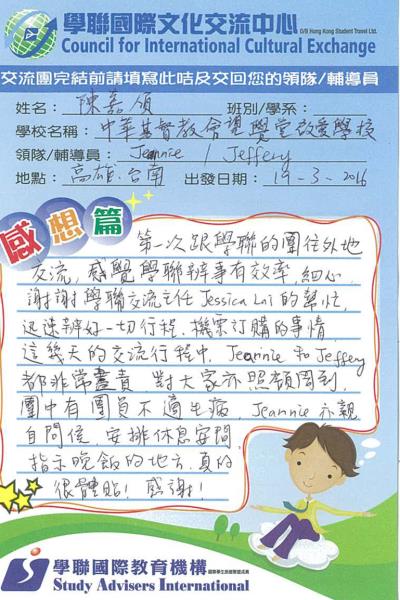 學聯國際文化交流中心
O/B Hong Kong Student Travel Ltd.
Council for International Cultural Exchange
交流團完結前請填寫此咭及交回您的領隊/輔導員
姓名： 陳嘉頌 班別/學系：
學校名稱： 中華基督教會望覺堂啟愛學校
領隊/輔導員： Jeannie / Jeffery
地點： 高雄.台南 出發日期： 19-3-2016
感想篇
第一次跟學聯的團往外地
交流，感覺學聯辦事有效率，細心，
謝謝學聯交流主任Jessica Lai的幫忙，
迅速辦好一切行程、機票訂購的事情
這幾天的交流行程中，Jeannie和Jeffery
都非常盡責 對大家亦照顧周到，
團中有團員不適生病，Jeannie亦親
自問侯，安排休息房間，
指示晚飯的地方，真的
很體貼！感謝！
學聯國際教育機構
Study Advisers International